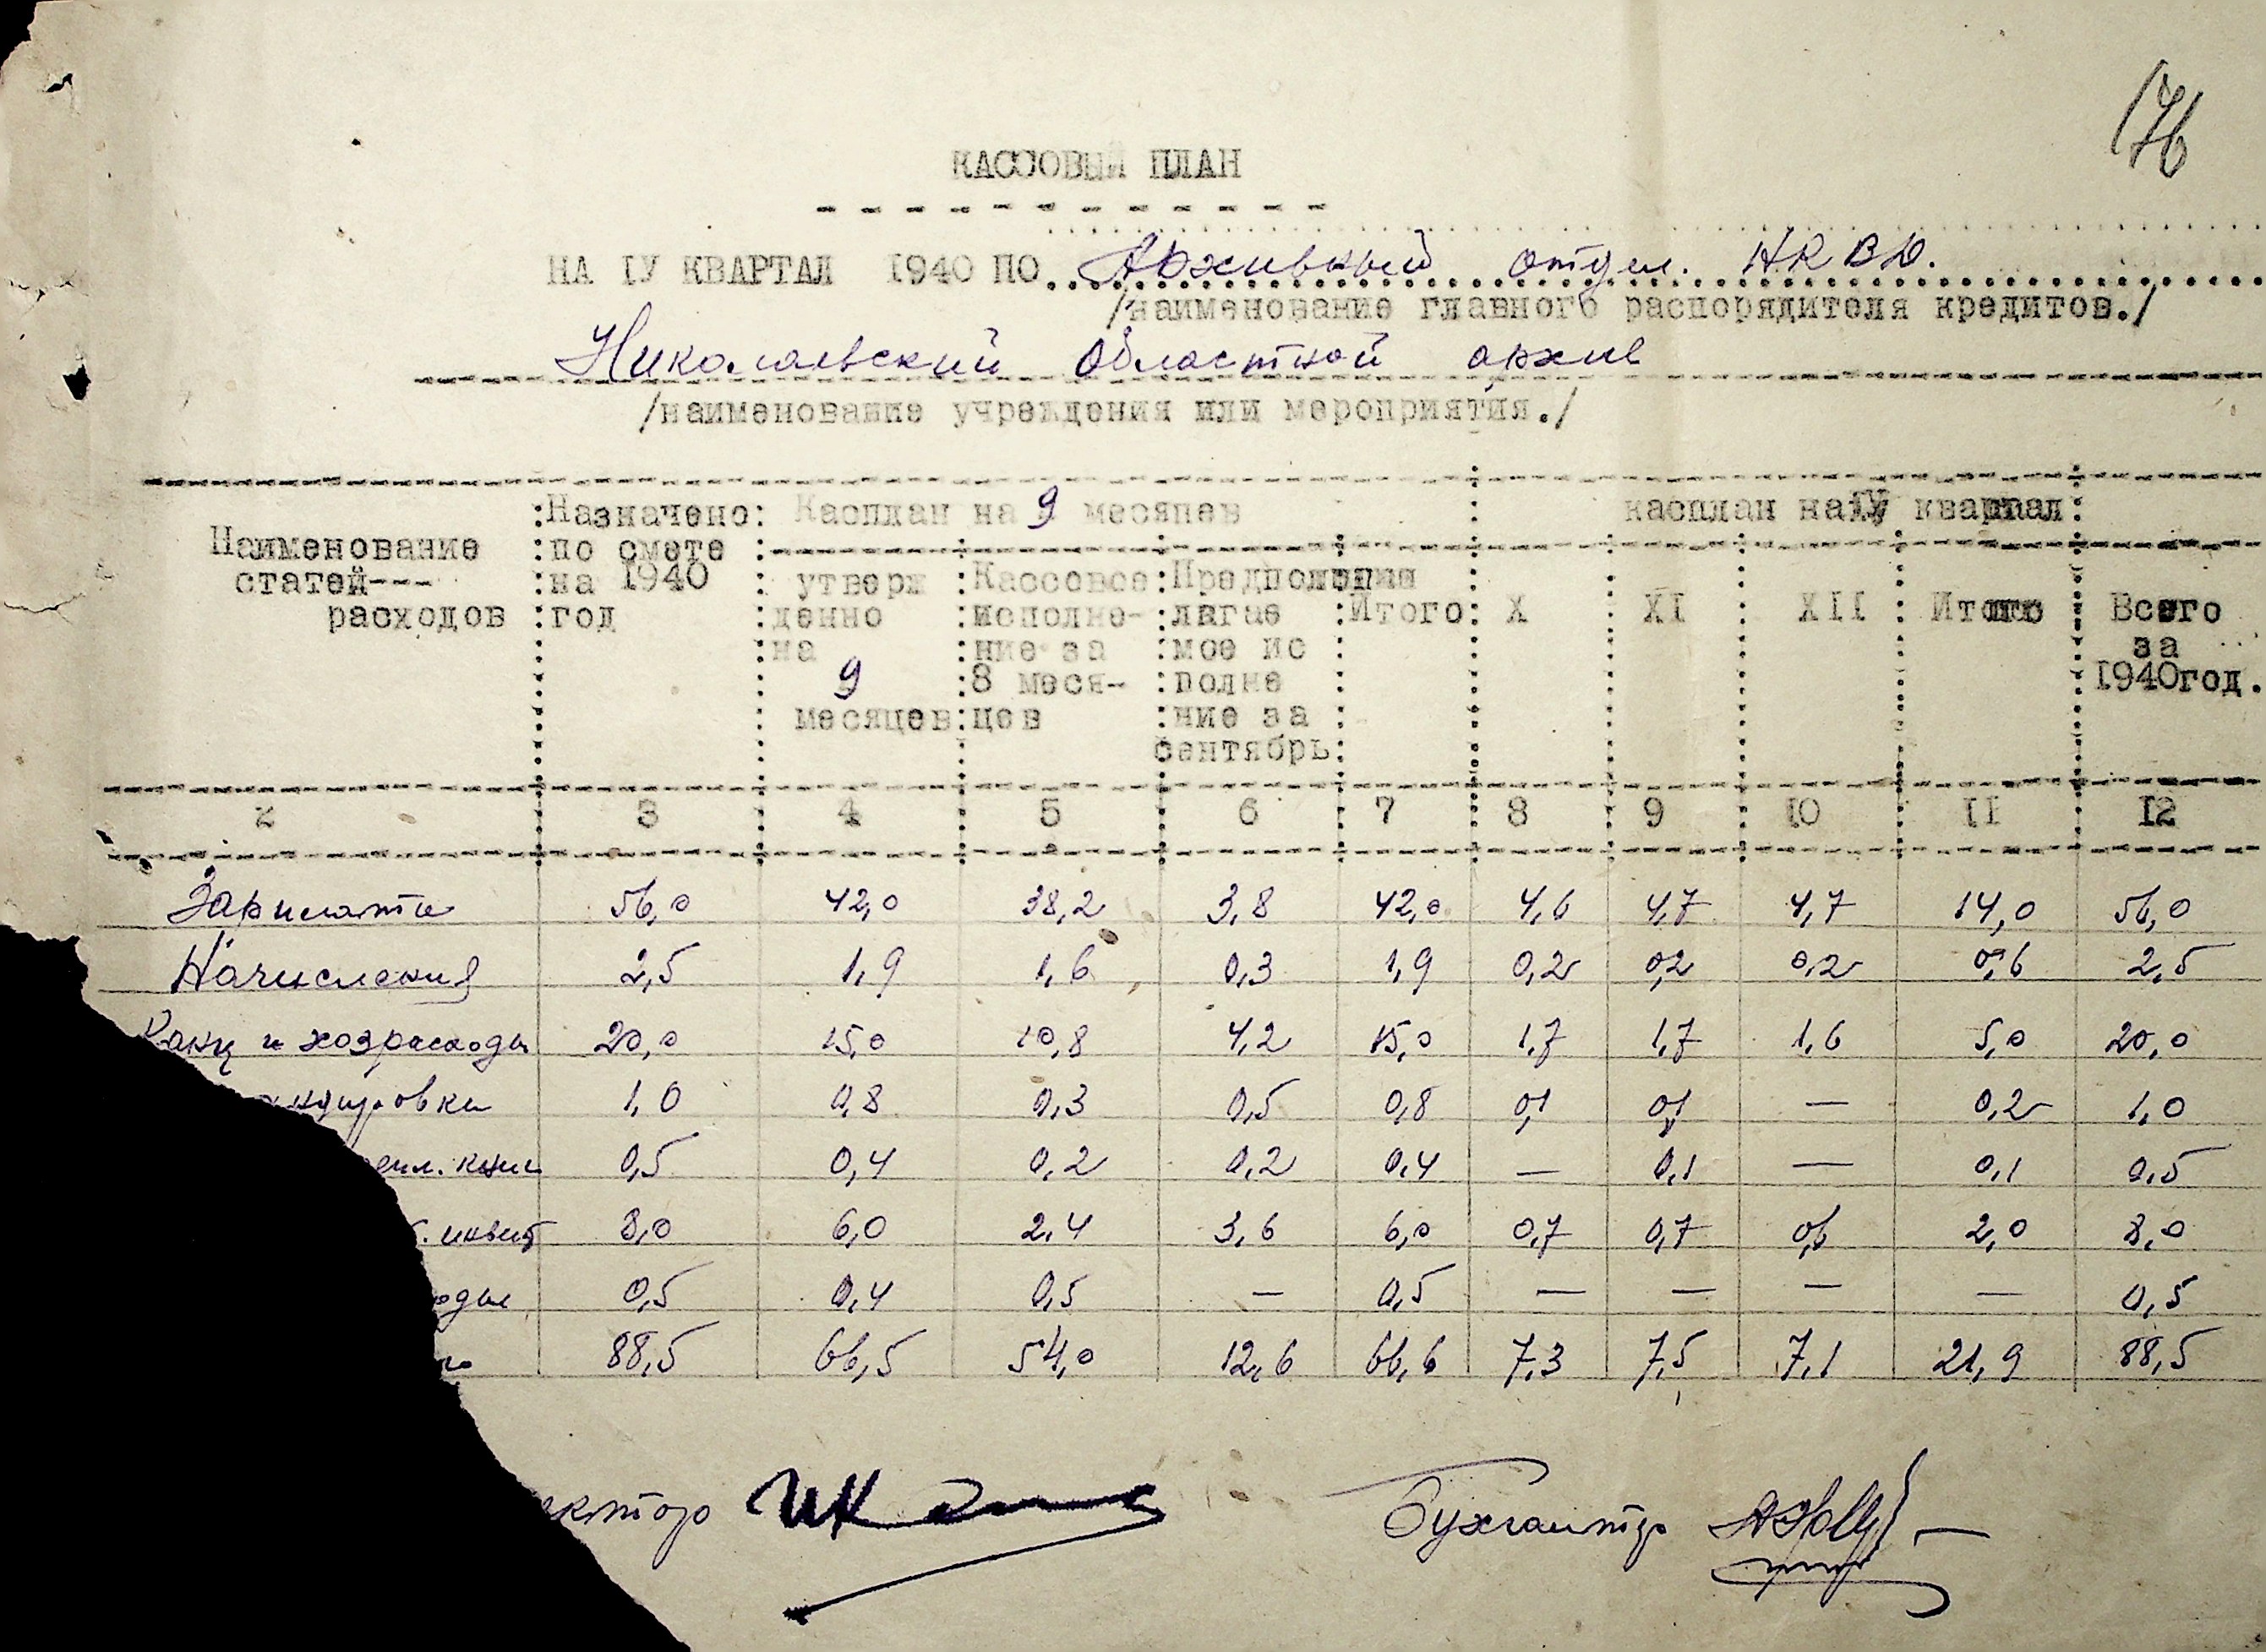 176
КАССОВЫЙ ПЛАН
НА IУ КВАРТАЛ 1940 ПО Архивный отдел. НКВД.
/наименование главного распорядителя кредитов./
Николаевский Областной архив
/наименование учреждения или мероприятия./
Наименование статей--- расходов
Назначено по смете на 1940 год
Касплан на 9 месяцев
утверж денно на 9 месяцев
Кассовое исполне- ние за 8 меся- цев
Предпо лагае мое ис полне ние за сентябрь
Итого
касплан на IУ квартал
X XI XII Итого
Всего за 1940год.
2 3 4 5 6 7 8 9 10 11 12
Зарплата 56,0 42,0 38,2 3,8 42,0 4,6 4,7 4,7 14,0 56,0
Начисления 2,5 1,9 1,6 0,3 1,9 0,2 0,2 0,2 0,6 2,5
Канц и хозрасходы 20,0 15,0 10,8 4,2 15,0 1,7 1,7 1,6 5,0 20,0
андировки 1,0 0,8 0,3 0,5 0,8 0,1 0,1 — 0,2 1,0
книг 0,5 0,4 0,2 0,2 0,4 — 0,1 — 0,1 0,5
инвент 8,0 6,0 2,4 3,6 6,0 0,7 0,7 0,6 2,0 8,0
оды 0,5 0,4 0,5 — 0,5 — — — — 0,5
го 88,5 66,5 54,0 12,6 66,6 7,3 7,5 7,1 21,9 88,5
ектор Бухгалтер